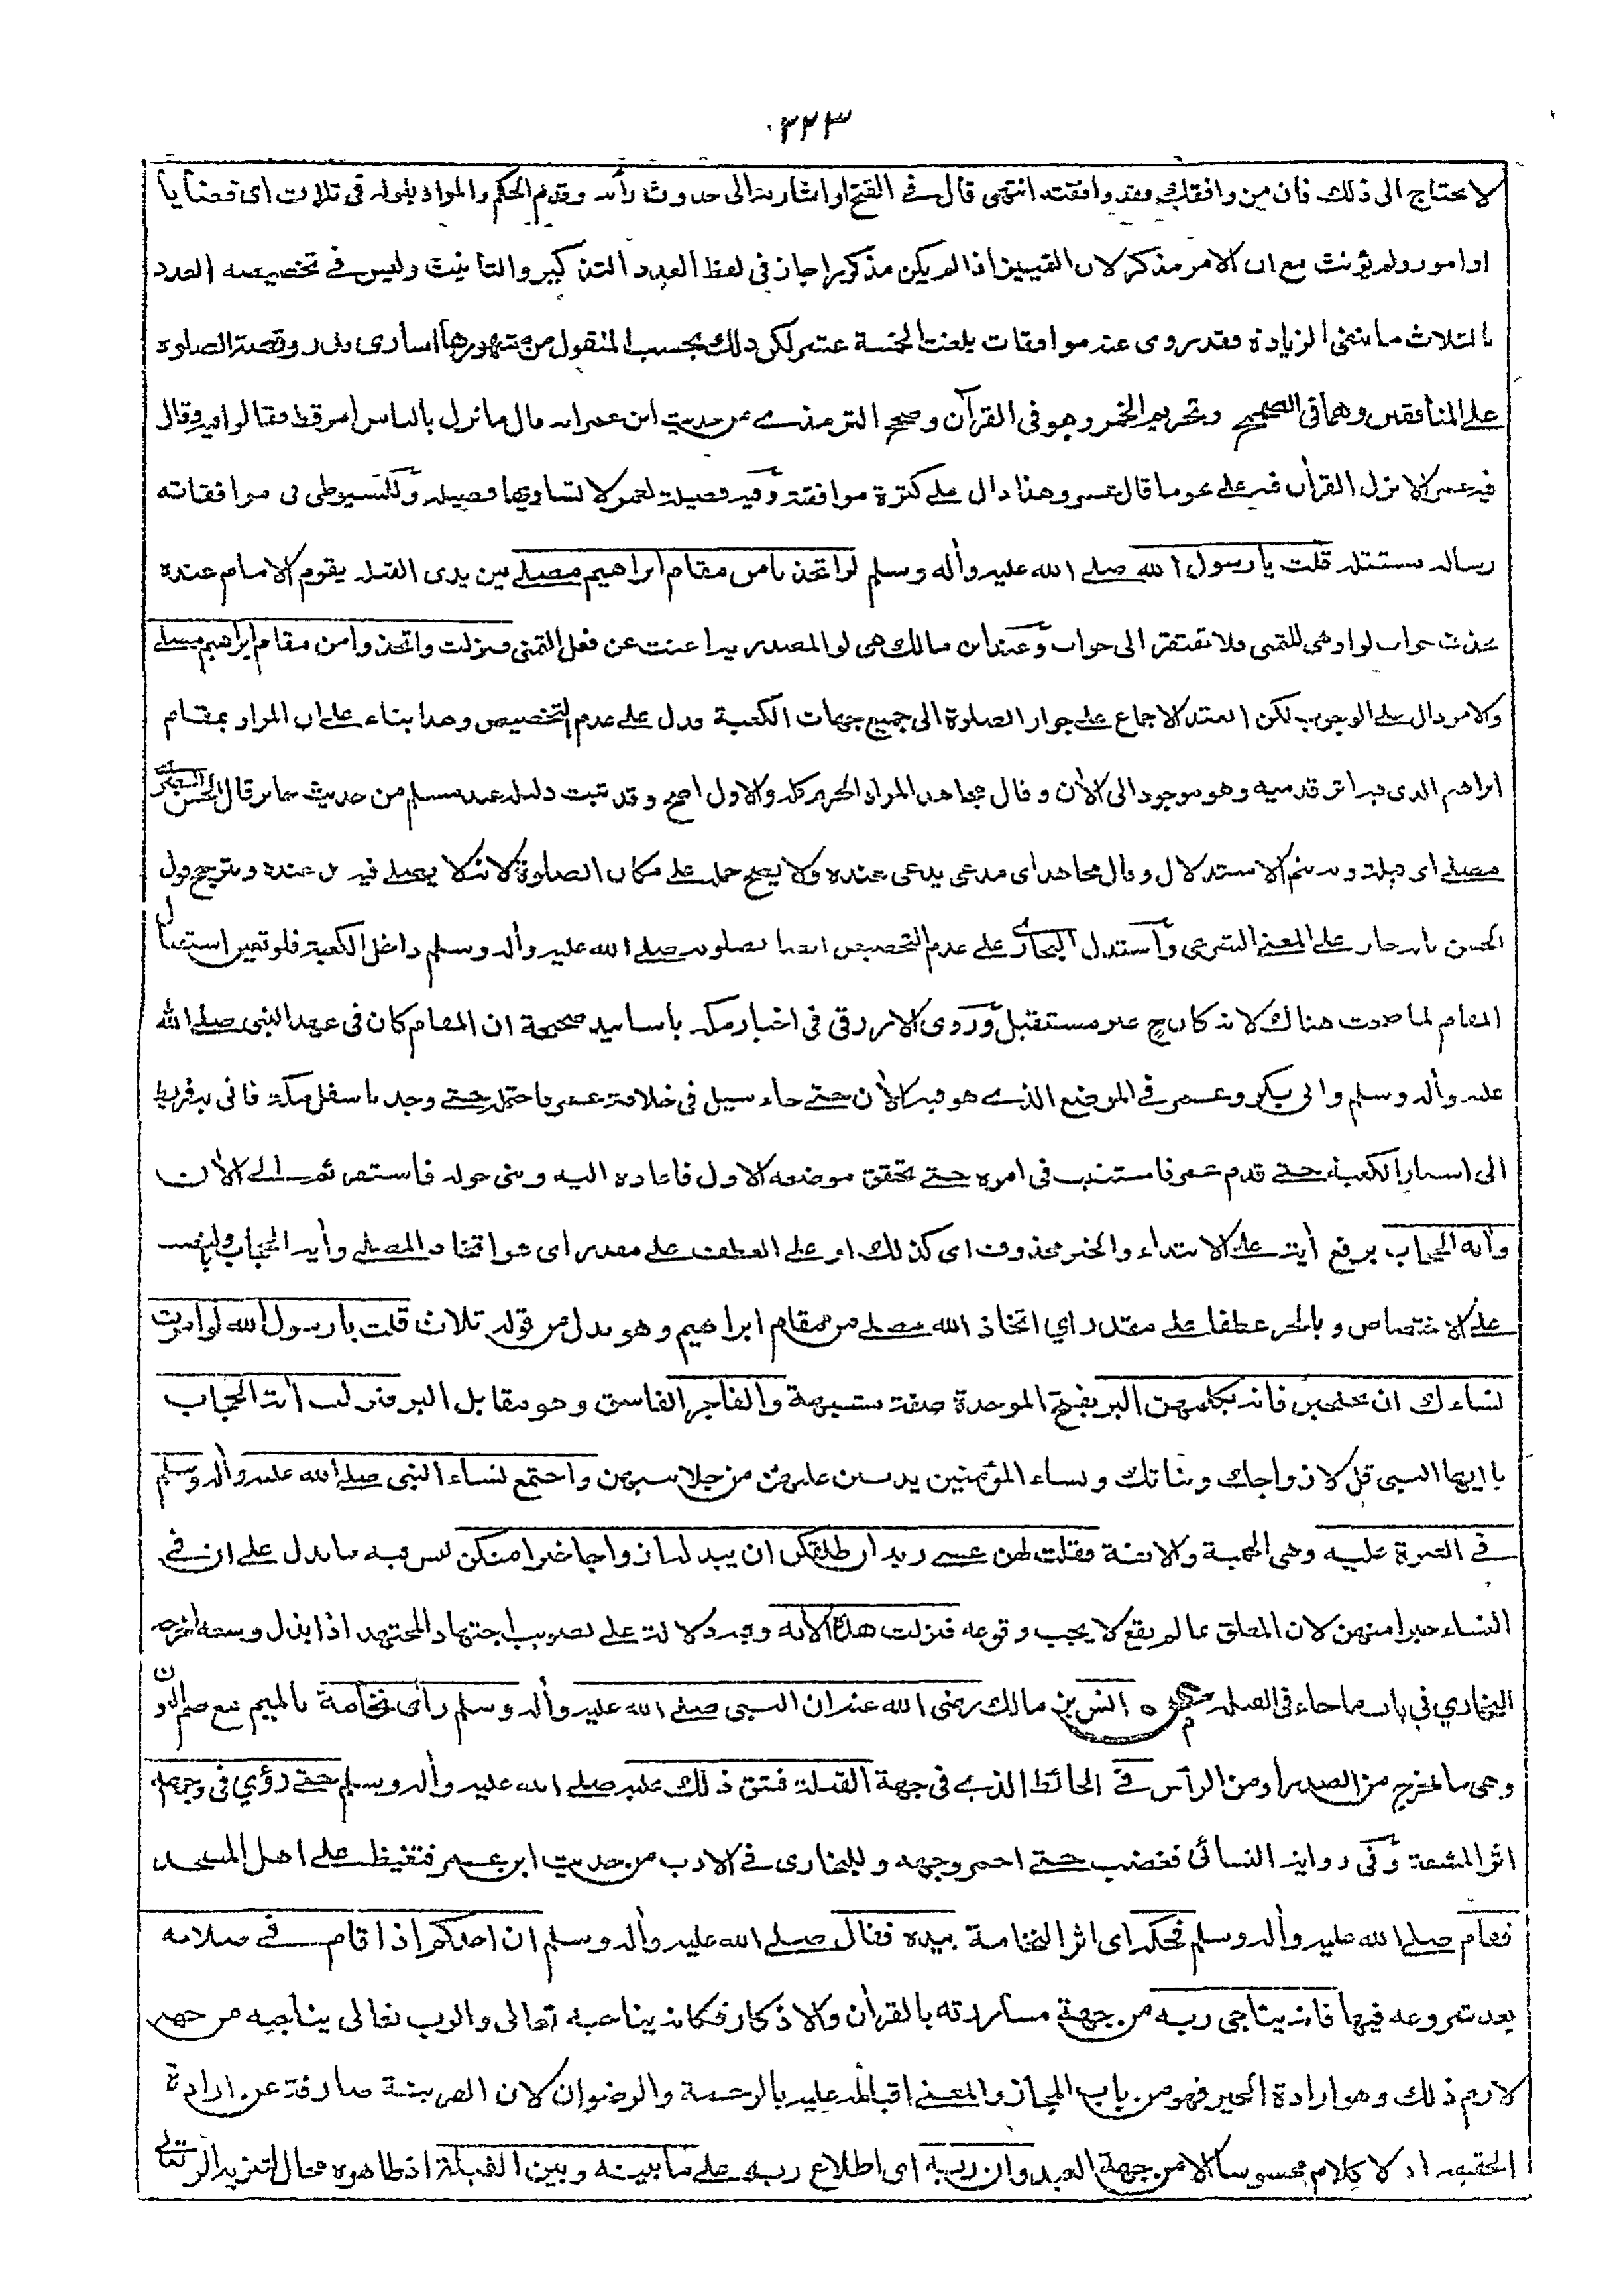 ٢٢٣
لا يحتاج الى ذلك فان من وافقك فقد وافقته انتهى قال في الفتح او اشار به الى حدوث رأيه وقدم الحكم والمواد بقوله في ثلاث اى قضايا
او امور ولم يؤنث مع ان الامر مذكر لان التمييز اذا لم يكن مذكورا جاز في لفظ العدد التذكير والتأنيث وليس في تخصيصه العدد
بالثلاث ما ينفي الزيادة فقد روى عنه موافقات بلغت الخمسة عشر لكن ذلك بحسب المنقول من مشهورها اسارى بدر وقصة الصلوة
على المنافقين وهما في الصحيح وتحريم الخمر وهو في القرآن وصحح الترمذي من حديث ابن عمر انه قال ما نزل بالناس امر قط فقالوا فيه وقال
فيه عمر الا نزل القرأن فيه على نحو ما قال عمر وهذا دال على كثرة موافقته وفيه فضيلة لعمر لا تساويها فضيلة وللسيوطى في موافقاته
رساله مستقله قلت يا رسول الله صلے الله عليه وأله وسلم لو اتخذنا من مقام ابراهيم مصلے بين يدى القبلة يقوم الامام عنده
بحذف جواب لو او هى للتمنى فلا تفتقر الى جواب وعند ابن مالك هى لو المصدرية اغنت عن فعل التمنى فنزلت واتخذوا من مقام ابراهيم مصلے
والامر دال على الوجوب لكن انعقد الاجماع على جواز الصلوة الى جميع جهات الكعبة فدل على عدم التخصيص وهذا بناء على ان المراد بمقام
ابراهيم الذى فيه اثر قدميه وهو موجود الى الأن وقال مجاهد المراد الحرم كله والاول اصح وقد ثبت دليله عند مسلم من حديث جابر قال الحسن البصرى
مصلے اى قبلة وبه يتم الاستدلال وقال مجاهد اى مدعى يدعى عنده ولا يصح حمله على مكان الصلوة لانه لا يصلے فيه بل عنده ويترجح قول
الحسن بانه جار على المعنى الشرعى واستدل البخارى على عدم التخصيص ايضا بصلوته صلے الله عليه وأله وسلم داخل الكعبة فلو تعين استقبال
المقام لما صحت هناك لانه كان ح غير مستقبل وروى الازرقى في اخبار مكه باسانيد صحيحة ان المقام كان في عهد النبى صلے الله
عليه وأله وسلم وابى بكر وعمر في الموضع الذى هو فيه الأن حتى جاء سيل في خلافة عمر فاحتمله حتى وجد باسفل مكة فاتى به فربط
الى استار الكعبة حتى قدم عمر فاستثبت في امره حتى تحقق موضعه الاول فاعاده اليه وبنى حوله فاستقر ثم الى الأن
وأية الحجاب برفع أية على الابتداء والخبر محذوف اى كذلك او على العطف على مقدر اى موافقتى المصلى وأية الحجاب وبالنصب
على الاختصاص وبالجر عطفا على مقدر اي اتخاذ الله مصلے من مقام ابراهيم وهو بدل من قوله ثلاث قلت يا رسول الله لو امرت
نساءك ان يحتجبن فانه يكلمهن البر بفتح الموحدة صفة مشبهة والفاجر الفاسق وهو مقابل البر فنزلت أية الحجاب
يا ايها النبى قل لازواجك وبناتك ونساء المؤمنين يدنين عليهن من جلابيبهن واجتمع نساء النبى صلے الله عليه وأله وسلم
في الغيرة عليه وهى الحمية والانفة فقلت لهن عسى ربه ان طلقكن ان يبدله ازواجا خيرا منكن ليس فيه ما يدل على ان في
النساء خيرا منهن لان المعلق بما لم يقع لا يجب وقوعه فنزلت هذه الآية وفيه دلالة على تصويب اجتهاد المجتهد اذا بذل وسعه اخرجه
البخاري في باب ما جاء في القبلة عن انس بن مالك رضى الله عنه ان النبى صلے الله عليه وأله وسلم رأى نخامة بالميم مع ضم النون
وهى ما يخرج من الصدر او من الرأس في الحائط الذى في جهة القبلة فشق ذلك عليه صلے الله عليه وأله وسلم حتى رؤي في وجهه
اثر المشقة وفى رواية النسائى فغضب حتى احمر وجهه وللبخارى في الادب من حديث ابن عمر فتغيظ على اهل المسجد
فقام صلے الله عليه وأله وسلم فحكه اى اثر النخامة بيده فقال صلے الله عليه وأله وسلم ان احدكم اذا قام في صلاته
بعد شروعه فيها فانه يناجى ربه من جهة مساررته بالقرأن والاذكار فكانه يناجيه تعالى والرب تعالى يناجيه من جهة
لازم ذلك وهو ارادة الخير فهو من باب المجاز والمعنى اقباله عليه بالرحمة والرضوان لان القرينة صارفة عن ارادة
الحقيقة اذ لا كلام محسوسا الا من جهة العبد وان ربه اى اطلاع ربه على ما بينه وبين القبلة اذ ظاهره محال لتنزيه الرب تعالى